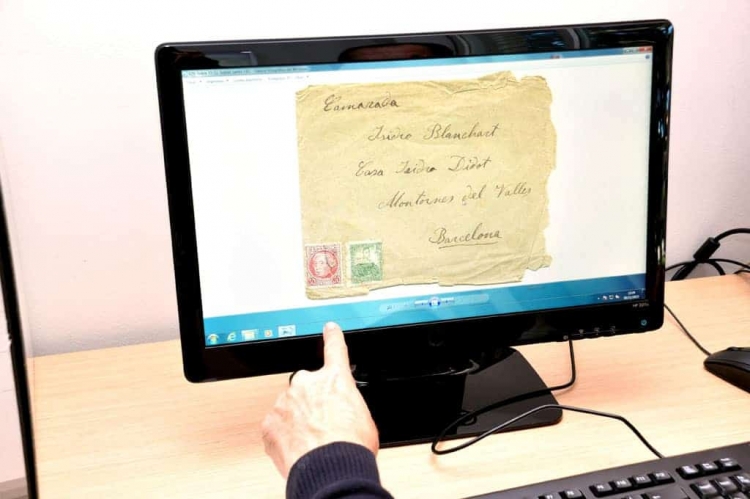 Camarada
Isidro Blanchart
Casa Isidro Didot
Montornes del Valles
Barcelona